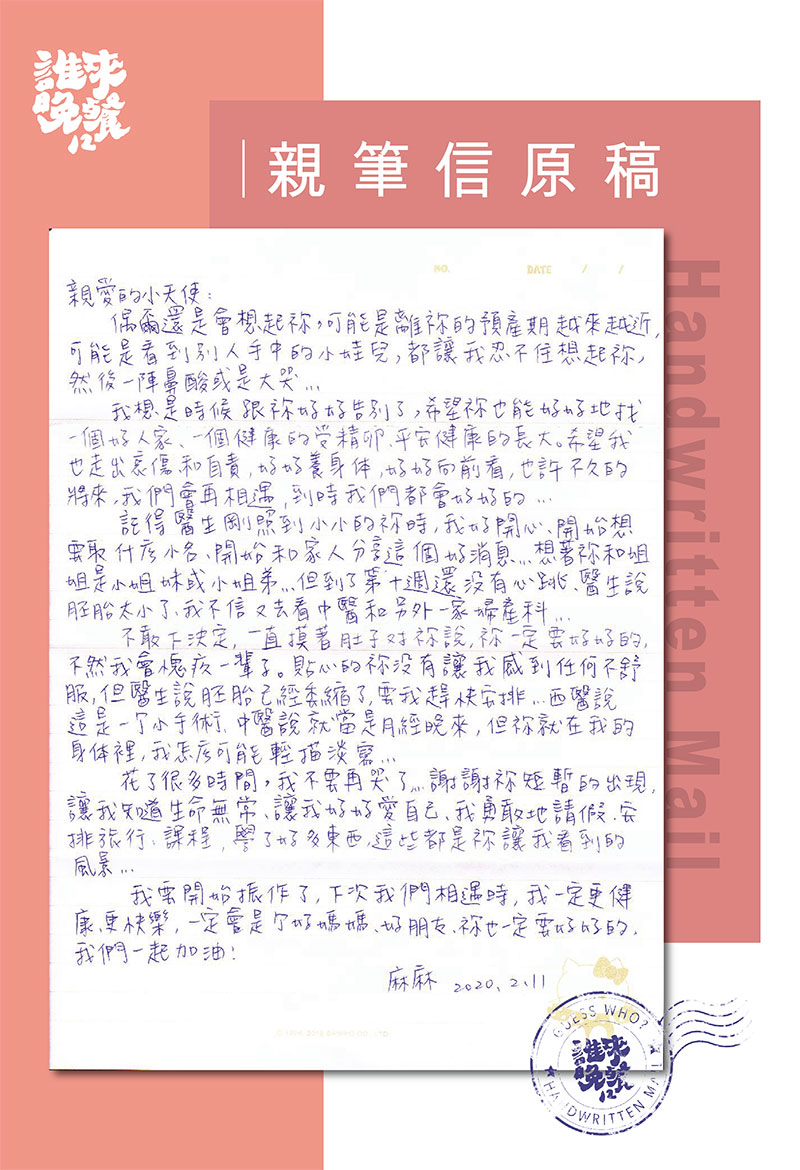 誰來
晚餐
12
親筆信原稿
Handwritten Mail
NO.
DATE / /
親愛的小天使:
偶爾還是會想起祢,可能是離祢的預產期越來越近,
可能是看到別人手中的小娃兒,都讓我忍不住想起祢,
然後一陣鼻酸或是大哭...
我想是時候跟祢好好告別了,希望祢也能好好地找
一個好人家、一個健康的受精卵、平安健康的長大。希望我
也走出哀傷和自責,好好養身体,好好向前看,也許不久的
將來,我們會再相遇,到時我們都會好好的...
記得醫生剛照到小小的祢時,我好開心、開始想
要取什庅小名、開始和家人分享這個好消息...想著祢和姐
姐是小姐妹或小姐弟...但到了第十週還沒有心跳、醫生說
胚胎太小了、我不信又去看中醫和另外一家婦產科...
不敢下決定,一直摸著肚子對祢說,祢一定要好好的,
不然我會愧疚一輩子。貼心的祢沒有讓我感到任何不舒
服,但醫生說胚胎已經萎縮了,要我趕快安排...西醫說
這是一个小手術、中醫說就當是月經晚來,但祢就在我的
身体裡,我怎庅可能輕描淡寫...
花了很多時間,我不要再哭了...謝謝祢短暫的出現,
讓我知道生命無常、讓我好好愛自己、我勇敢地請假、安
排旅行、課程,學了好多東西,這些都是祢讓我看到的
風景...
我要開始振作了,下次我們相遇時,我一定更健
康、更快樂,一定會是个好媽媽、好朋友、祢也一定要好好的,
我們一起加油!
麻麻 2020.2.11
GUESS WHO?
誰來
晚餐
12
HANDWRITTEN MAIL